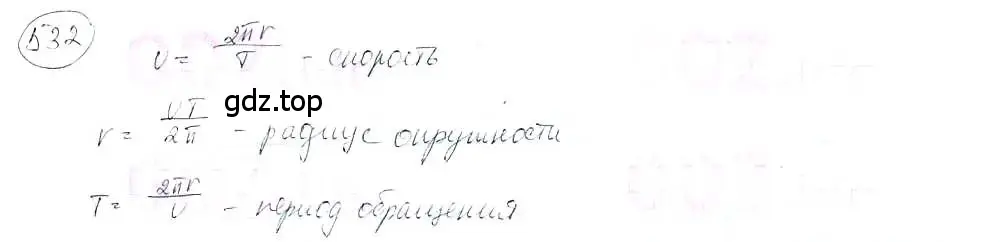 532
υ = 2πr/T - скорость
gdz.top
r = υT/2π - радиус окружности
T = 2πr/υ - период обращения